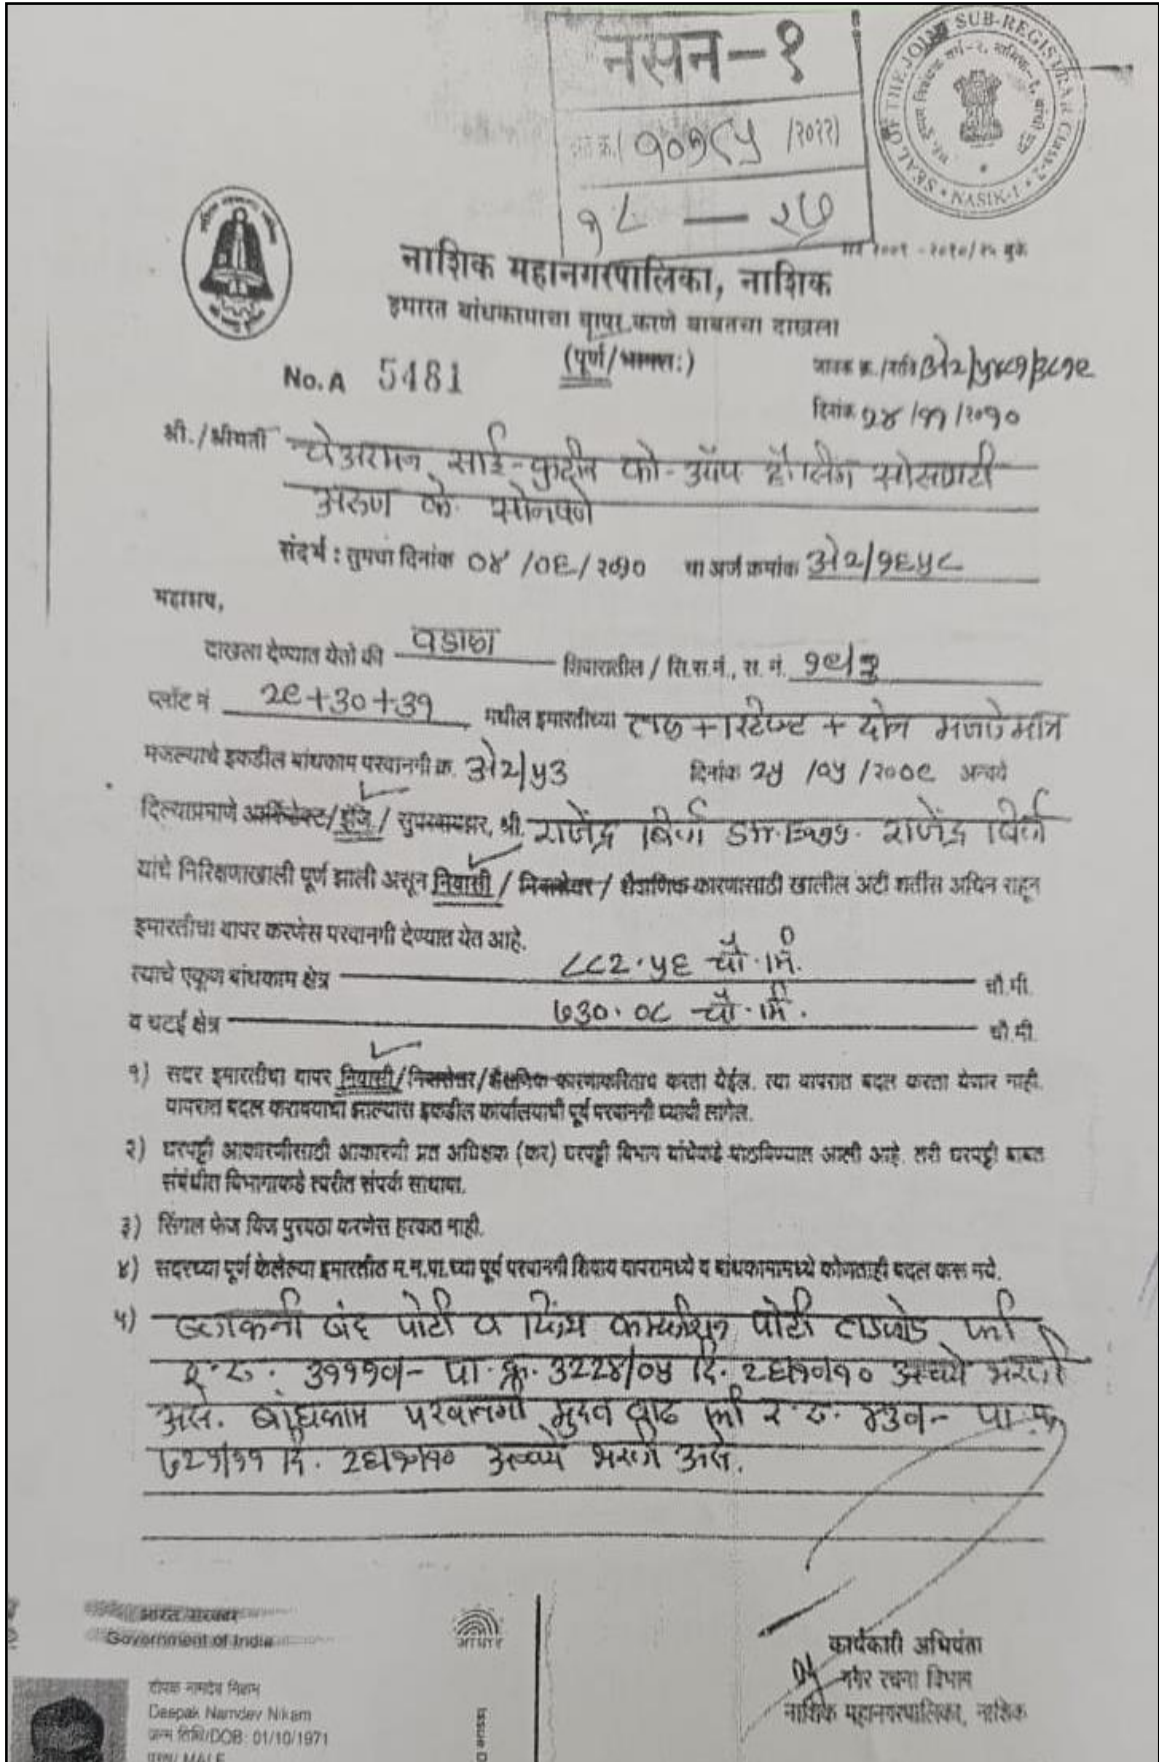 नसन-१
१०७९५ /२०२२)
१८ — २७
SEAL OF THE JOINT SUB-REGISTRAR Class-2 • NASIK-1 •
सन २००९ -२०१०/२५ बुके
नाशिक महानगरपालिका, नाशिक
इमारत बांधकामाचा वापर करणे बाबतचा दाखला
(पूर्ण/भागशः)
No. A 5481
जावक क्र./नरवि/अे२/५४८१/३८१९
दिनांक २४/११/२०१०
श्री./श्रीमती चेअरमन, साई-कुटीर को-ऑप हौसिंग सोसायटी
अरुण के. सोनवणे
संदर्भ : तुमचा दिनांक ०४/०६/२०१० चा अर्ज क्रमांक अे२/१६५८
महाशय,
दाखला देण्यात येतो की वडाळा शिवारातील / सि.स.नं., स. नं. १९/
प्लॉट नं २९+३०+३१ मधील इमारतीच्या तळ + स्टिल्ट + दोन मजले मात्र
मजल्याचे इकडील बांधकाम परवानगी क्र. अे२/५३ दिनांक २५/०५/२००९ अन्वये
दिल्याप्रमाणे आर्किटेक्ट/इंजि./ सुपरवायझर, श्री. राजेंद्र बिर्ला Str. Engg. राजेंद्र बिर्ला
यांचे निरिक्षणाखाली पूर्ण झाली असून निवासी / निवासेतर / शैक्षणिक कारणासाठी खालील अटी शर्तीस अधिन राहून
इमारतीचा वापर करणेस परवानगी देण्यात येत आहे.
त्याचे एकूण बांधकाम क्षेत्र ८८२.५६ चौ.मि. चौ.मी.
व चटई क्षेत्र ७३०.०८ चौ.मि. चौ.मी.
१) सदर इमारतीचा वापर निवासी/निवासेतर/शैक्षणिक कारणाकरिताच करता येईल. त्या वापरात बदल करता येणार नाही.
वापरात बदल करावयाचा झाल्यास इकडील कार्यालयाची पूर्व परवानगी घ्यावी लागेल.
२) घरपट्टी आकारणीसाठी आकारणी प्रत अधिक्षक (कर) घरपट्टी विभाग यांचेकडे पाठविण्यात आली आहे. तरी घरपट्टी बाबत
संबंधीत विभागाकडे त्वरीत संपर्क साधावा.
३) सिंगल फेज विज पुरवठा करणेस हरकत नाही.
४) सदरच्या पूर्ण केलेल्या इमारतीत म.न.पा.च्या पूर्व परवानगी शिवाय वापरामध्ये व बांधकामामध्ये कोणताही बदल करू नये.
५) बाल्कनी बंद पोटी व पोटी फी
र.रु. ३१११०/- पा.क्र. ३२२४/०५ दि. २६/१०/१० अन्वये भरली
असे. बांधकाम परवानगी मुदत वाढ फी र.रु. ४३०/- पा.क्र.
७२१/११ दि. २६/१०/१० अन्वये भरली असे.
कार्यकारी अभियंता
नगर रचना विभाग
नाशिक महानगरपालिका, नाशिक
भारत सरकार
Government of India
आधार
दीपक नामदेव निकम
Deepak Namdev Nikam
जन्म तिथि/DOB: 01/10/1971
पुरुष/ MALE
Issue D